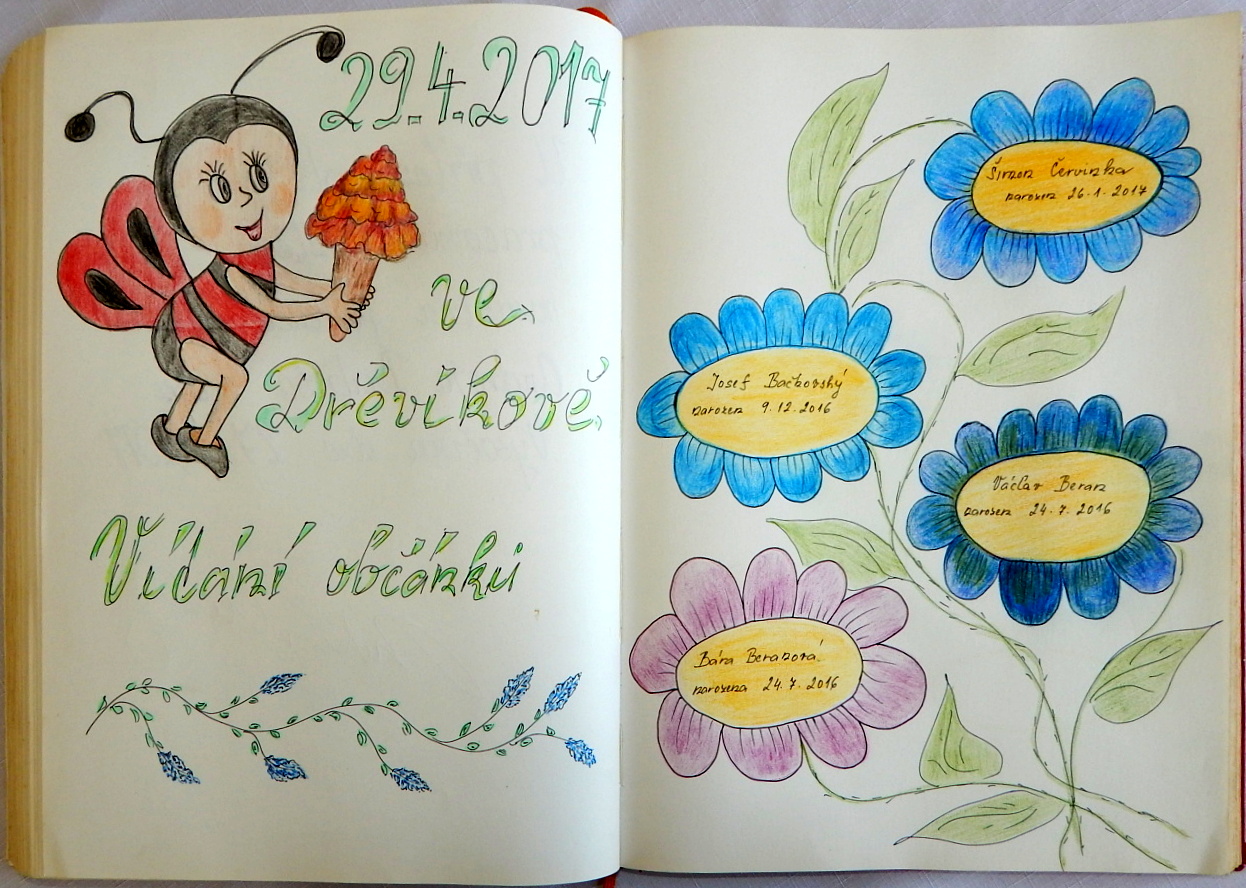 29.4.2017
ve
Dřevíkově
Vítání občánků
Šimon Červinka
narozen 26.1.2017
Josef Bačkovský
narozen 9.12.2016
Václav Beran
narozen 24.7.2016
Bára Beranová
narozena 24.7.2016